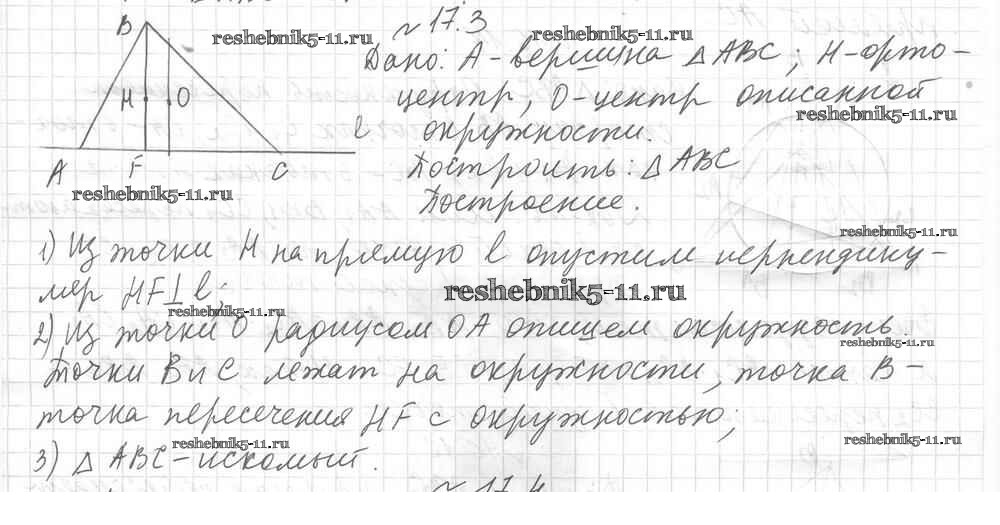 ~ 17.3
reshebnik5-11.ru
reshebnik5-11.ru
Дано: А - вершина △ ABC; H - орто-
центр, О - центр описанной
reshebnik5-11.ru
окружности.
Построить: △ ABC
Построение.
B
H
O
l
A
F
C
reshebnik5-11.ru
reshebnik5-11.ru
1) Из точки H на прямую l опустим перпендику-
ляр HF⊥l;
reshebnik5-11.ru
reshebnik5-11.ru
2) Из точки O радиусом OA опишем окружность.
reshebnik5-11.ru
Точки B и C лежат на окружности, точка B -
точка пересечения HF с окружностью;
reshebnik5-11.ru
reshebnik5-11.ru
3) △ ABC - искомый.
~ 17.4